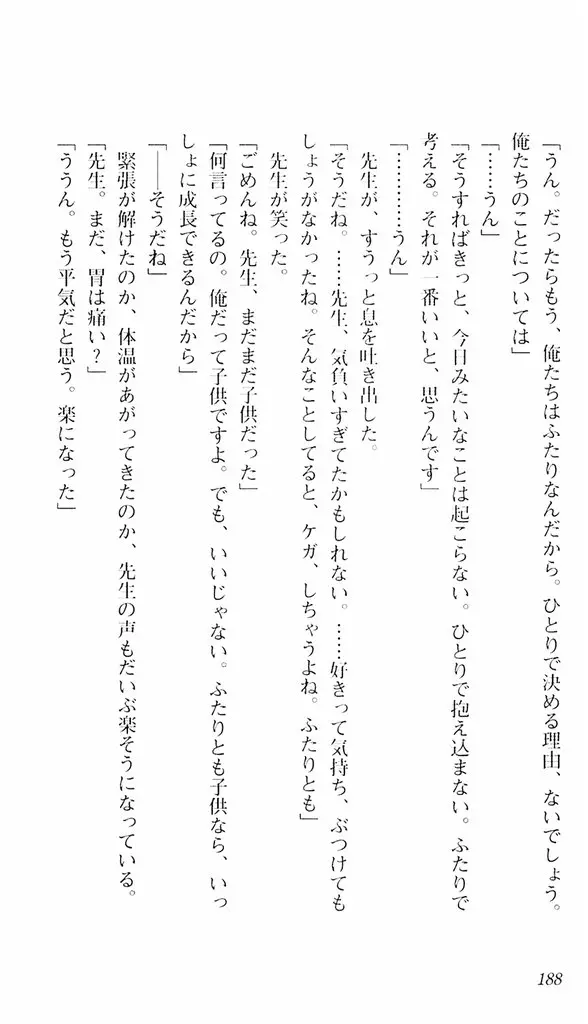 「うん。だったらもう、俺たちはふたりなんだから。ひとりで決める理由、ないでしょう。
俺たちのことについては」
「……うん」
「そうすればきっと、今日みたいなことは起こらない。ひとりで抱え込まない。ふたりで
考える。それが一番いいと、思うんです」
「…………うん」
先生が、すうっと息を吐き出した。
「そうだね。……先生、気負いすぎてたかもしれない。……好きって気持ち、ぶつけても
しょうがなかったね。そんなことしてると、ケガ、しちゃうよね。ふたりとも」
先生が笑った。
「ごめんね。先生、まだまだ子供だった」
「何言ってるの。俺だって子供ですよ。でも、いいじゃない。ふたりとも子供なら、いっ
しょに成長できるんだから」
「――そうだね」
緊張が解けたのか、体温があがってきたのか、先生の声もだいぶ楽そうになっている。
「先生。まだ、胃は痛い？」
「ううん。もう平気だと思う。楽になった」
188